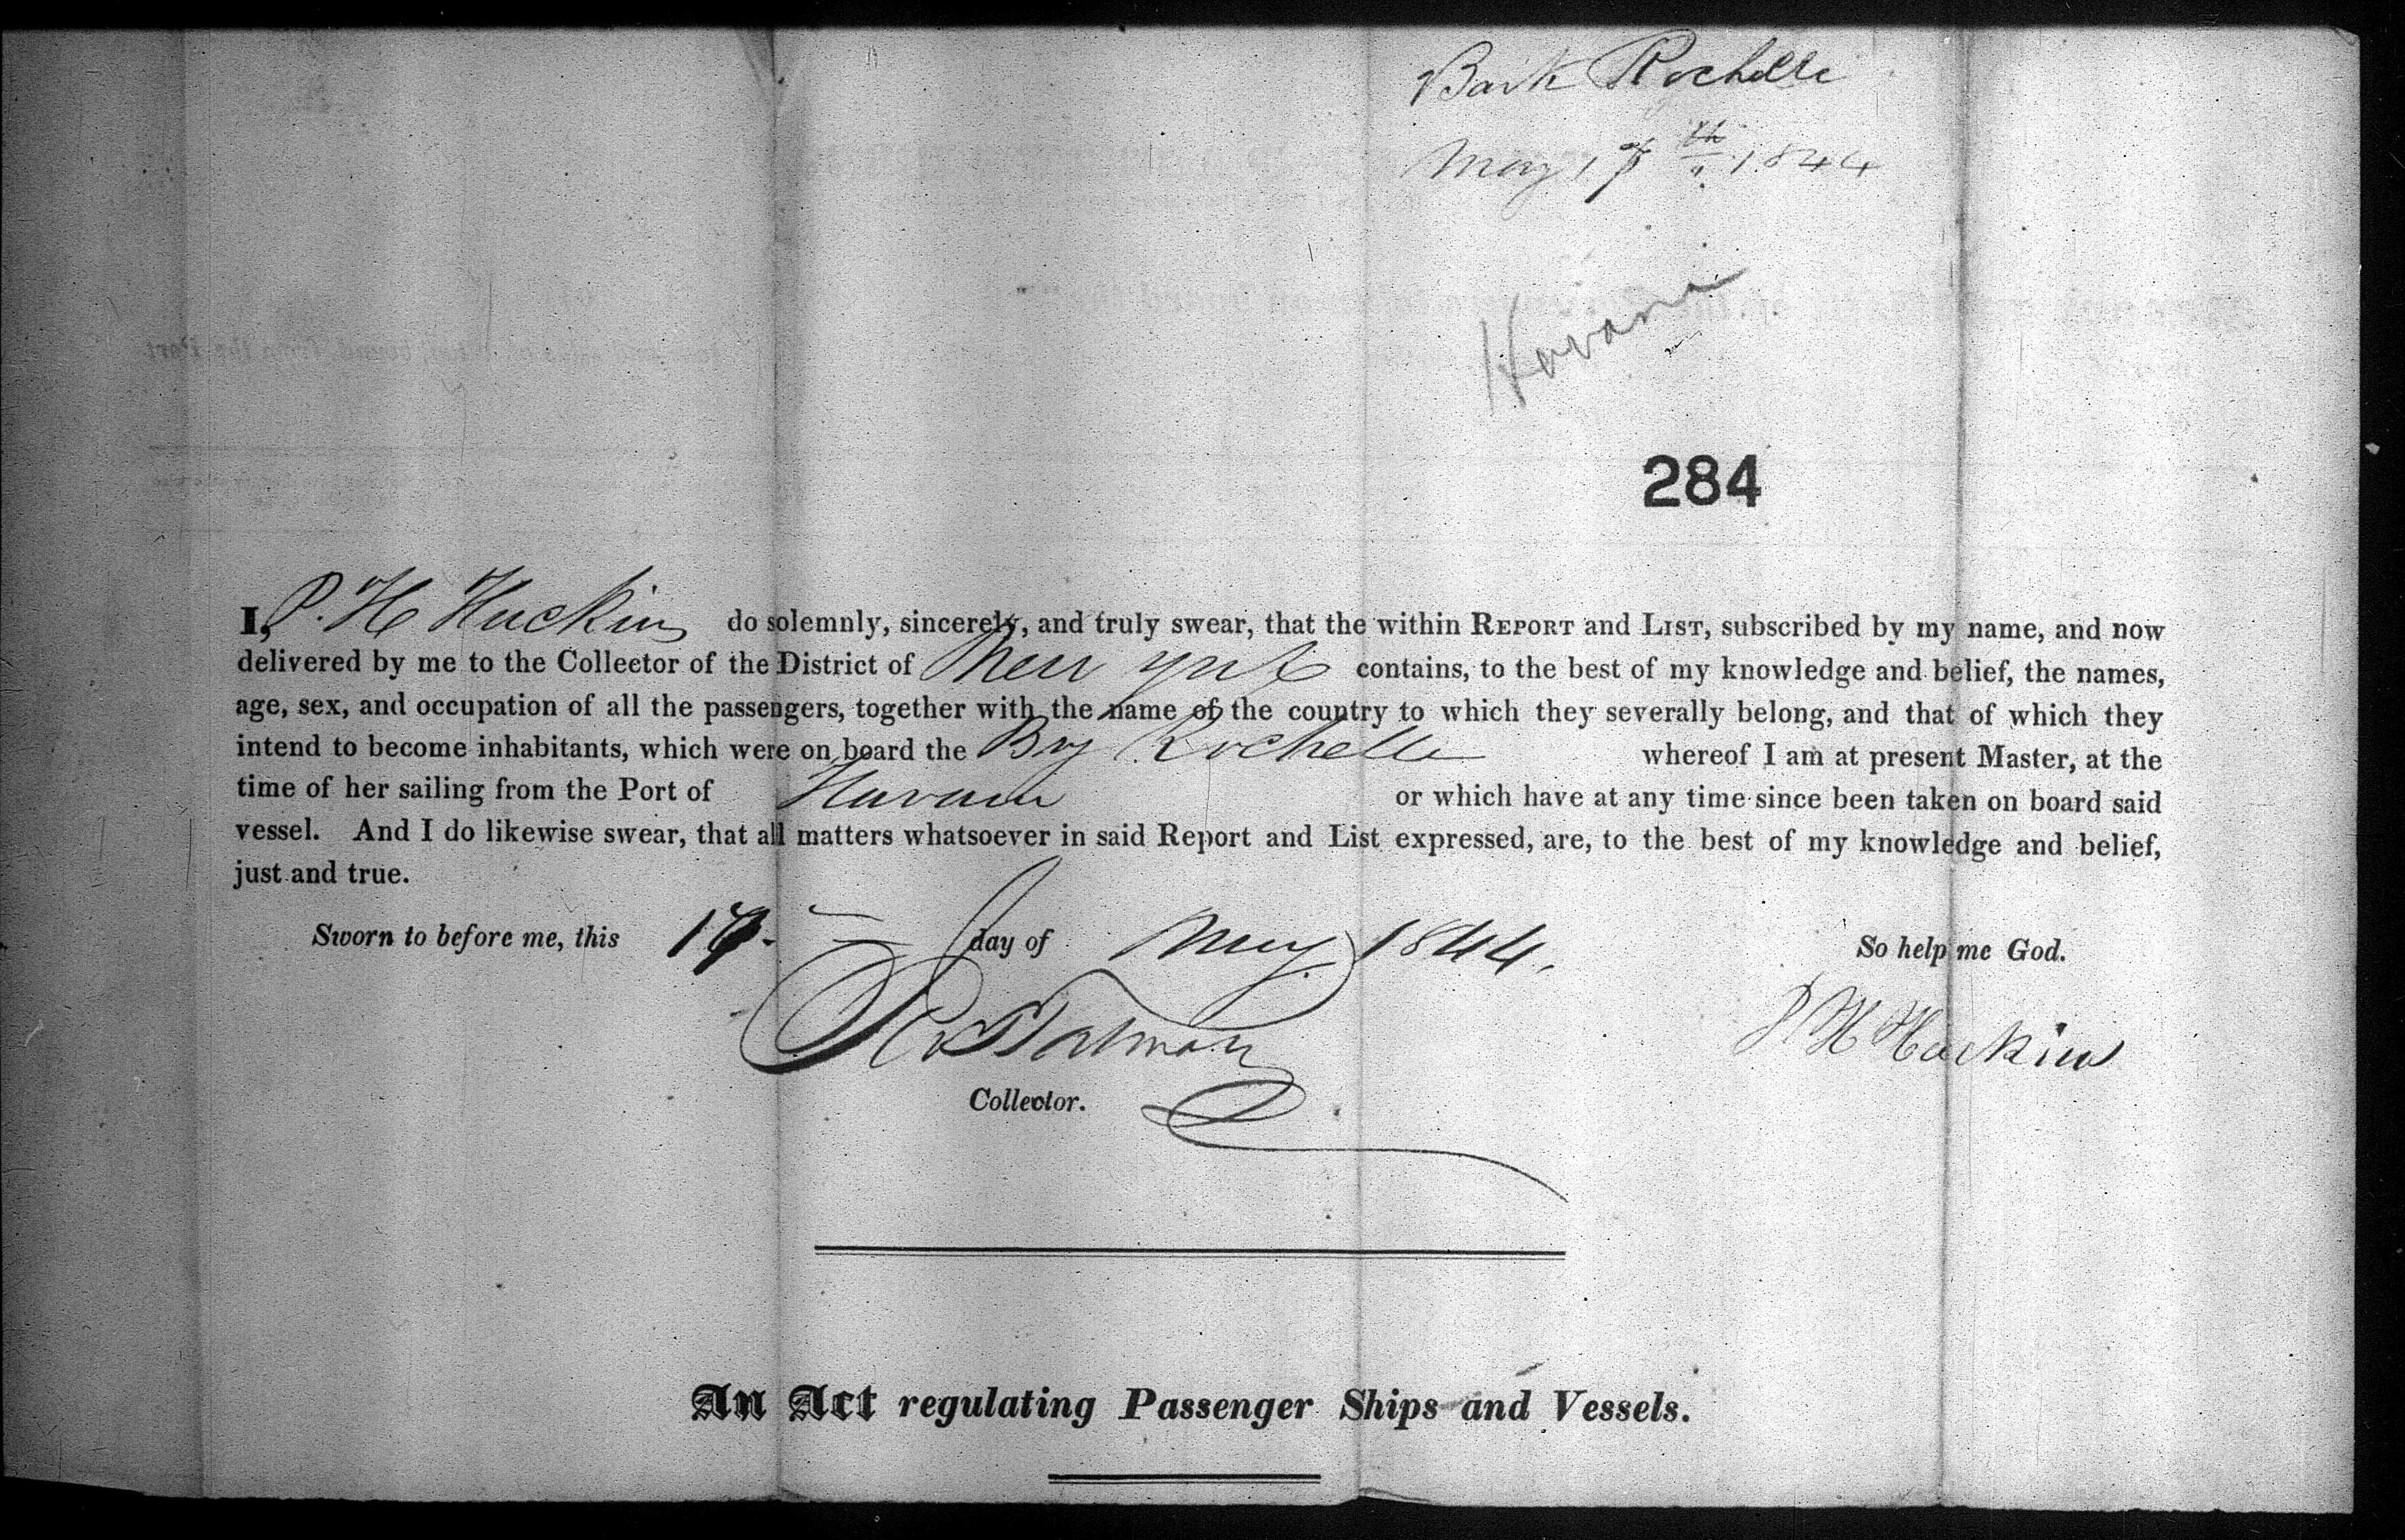 Bark Rochelle
May 17th 1844
Havana
284
I, P. H Huckins do solemnly, sincerely, and truly swear, that the within REPORT and LIST, subscribed by my name, and now
delivered by me to the Collector of the District of New York contains, to the best of my knowledge and belief, the names,
age, sex, and occupation of all the passengers, together with the name of the country to which they severally belong, and that of which they
intend to become inhabitants, which were on board the Rochelle whereof I am at present Master, at the
time of her sailing from the Port of Havana or which have at any time since been taken on board said
vessel. And I do likewise swear, that all matters whatsoever in said Report and List expressed, are, to the best of my knowledge and belief,
just and true.
Sworn to before me, this 17 day of May 1844. So help me God.
P H Huckins
Collector.
An Act regulating Passenger Ships and Vessels.